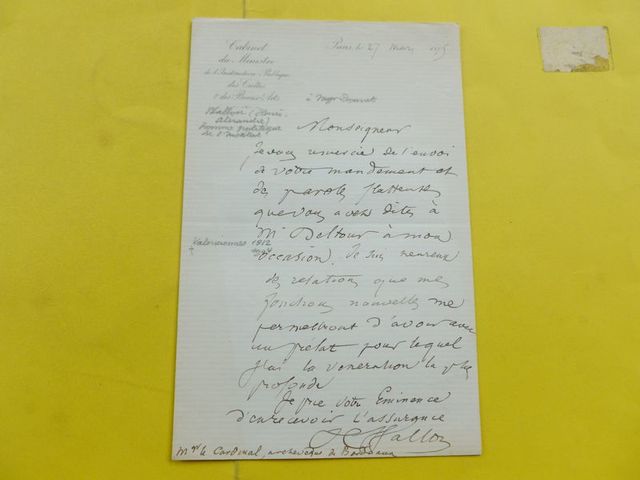 Cabinet
du Ministre
de l'Instruction Publique
des Cultes
& des Beaux-Arts
Paris, le 27 Mars 1875
à Mgr Donnet
Wallon (Henri
Alexandre)
homme politique
de l'Institut
Monseigneur
Je vous remercie de l'envoi
de votre mandement et
des paroles flatteuses
que vous avez dites à
Mr Deltour à mon
Valenciennes 1812
†
occasion. Je suis heureux
des relations que mes
fonctions nouvelles me
permettront d'avoir avec
un prélat pour lequel
j'ai la vénération la plus
profonde
Je prie Votre Eminence
d'en recevoir l'assurance
H Wallon
Mgr le Cardinal, archevêque de Bordeaux